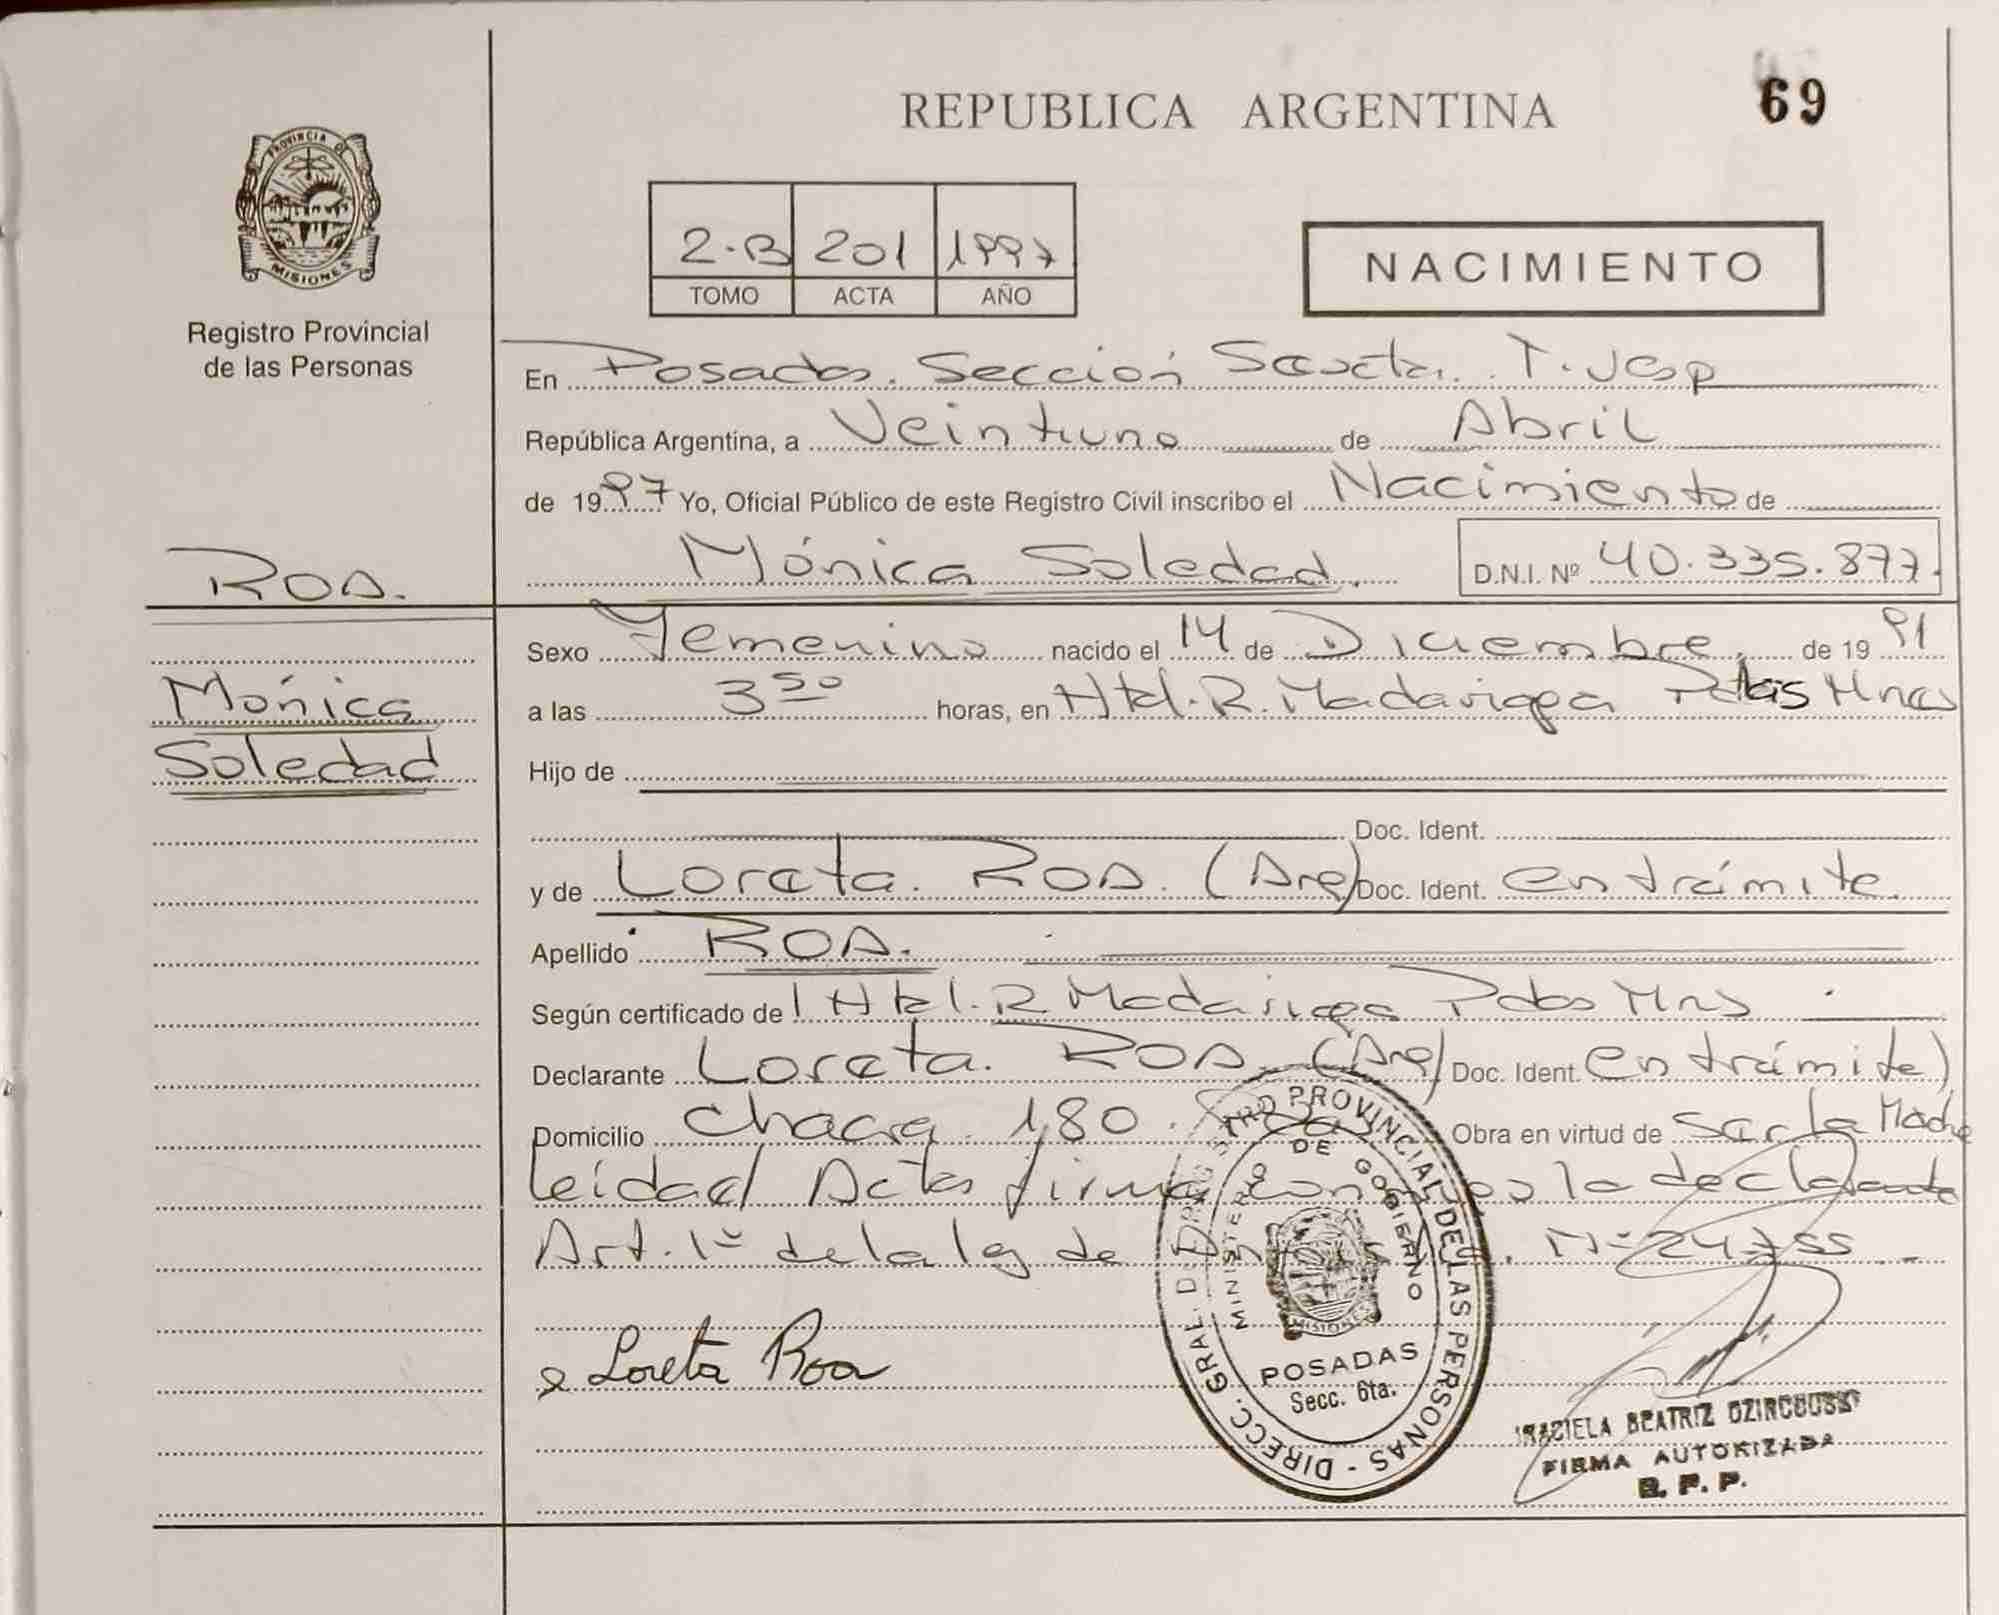 REPUBLICA ARGENTINA
69
PROVINCIA DE
MISIONES
Registro Provincial
de las Personas
2-B 201 1997
TOMO ACTA AÑO
NACIMIENTO
En Posadas. Sección Sexta.
República Argentina, a Veintiuno de Abril
de 1997 Yo, Oficial Público de este Registro Civil inscribo el Nacimiento de
Mónica Soledad. D.N.I. Nº 40.335.877.
ROA.
Mónica
Soledad
Sexo Femenino nacido el 14 de Diciembre, de 1991
a las 3 50 horas, en Htal. R. Madariaga Pdas Mnes
Hijo de
Doc. Ident.
y de Loreta. ROA. (Arg) Doc. Ident. en trámite.
Apellido ROA.
Según certificado de Htal. R Madariaga Pdas Mns
Declarante Loreta. ROA. (Arg) Doc. Ident. en trámite)
Domicilio Chacra 180. Obra en virtud de ser la Madre
leída el Acta firma la declarante
Art. 1º de la ley de Nº 24.755
Loreta Roa
DIRECC. GRAL. DEL REGISTRO PROVINCIAL DE LAS PERSONAS -
MINISTERIO DE GOBIERNO
MISIONES
POSADAS
Secc. 6ta.
BEATRIZ
FIRMA AUTORIZADA
R. P. P.